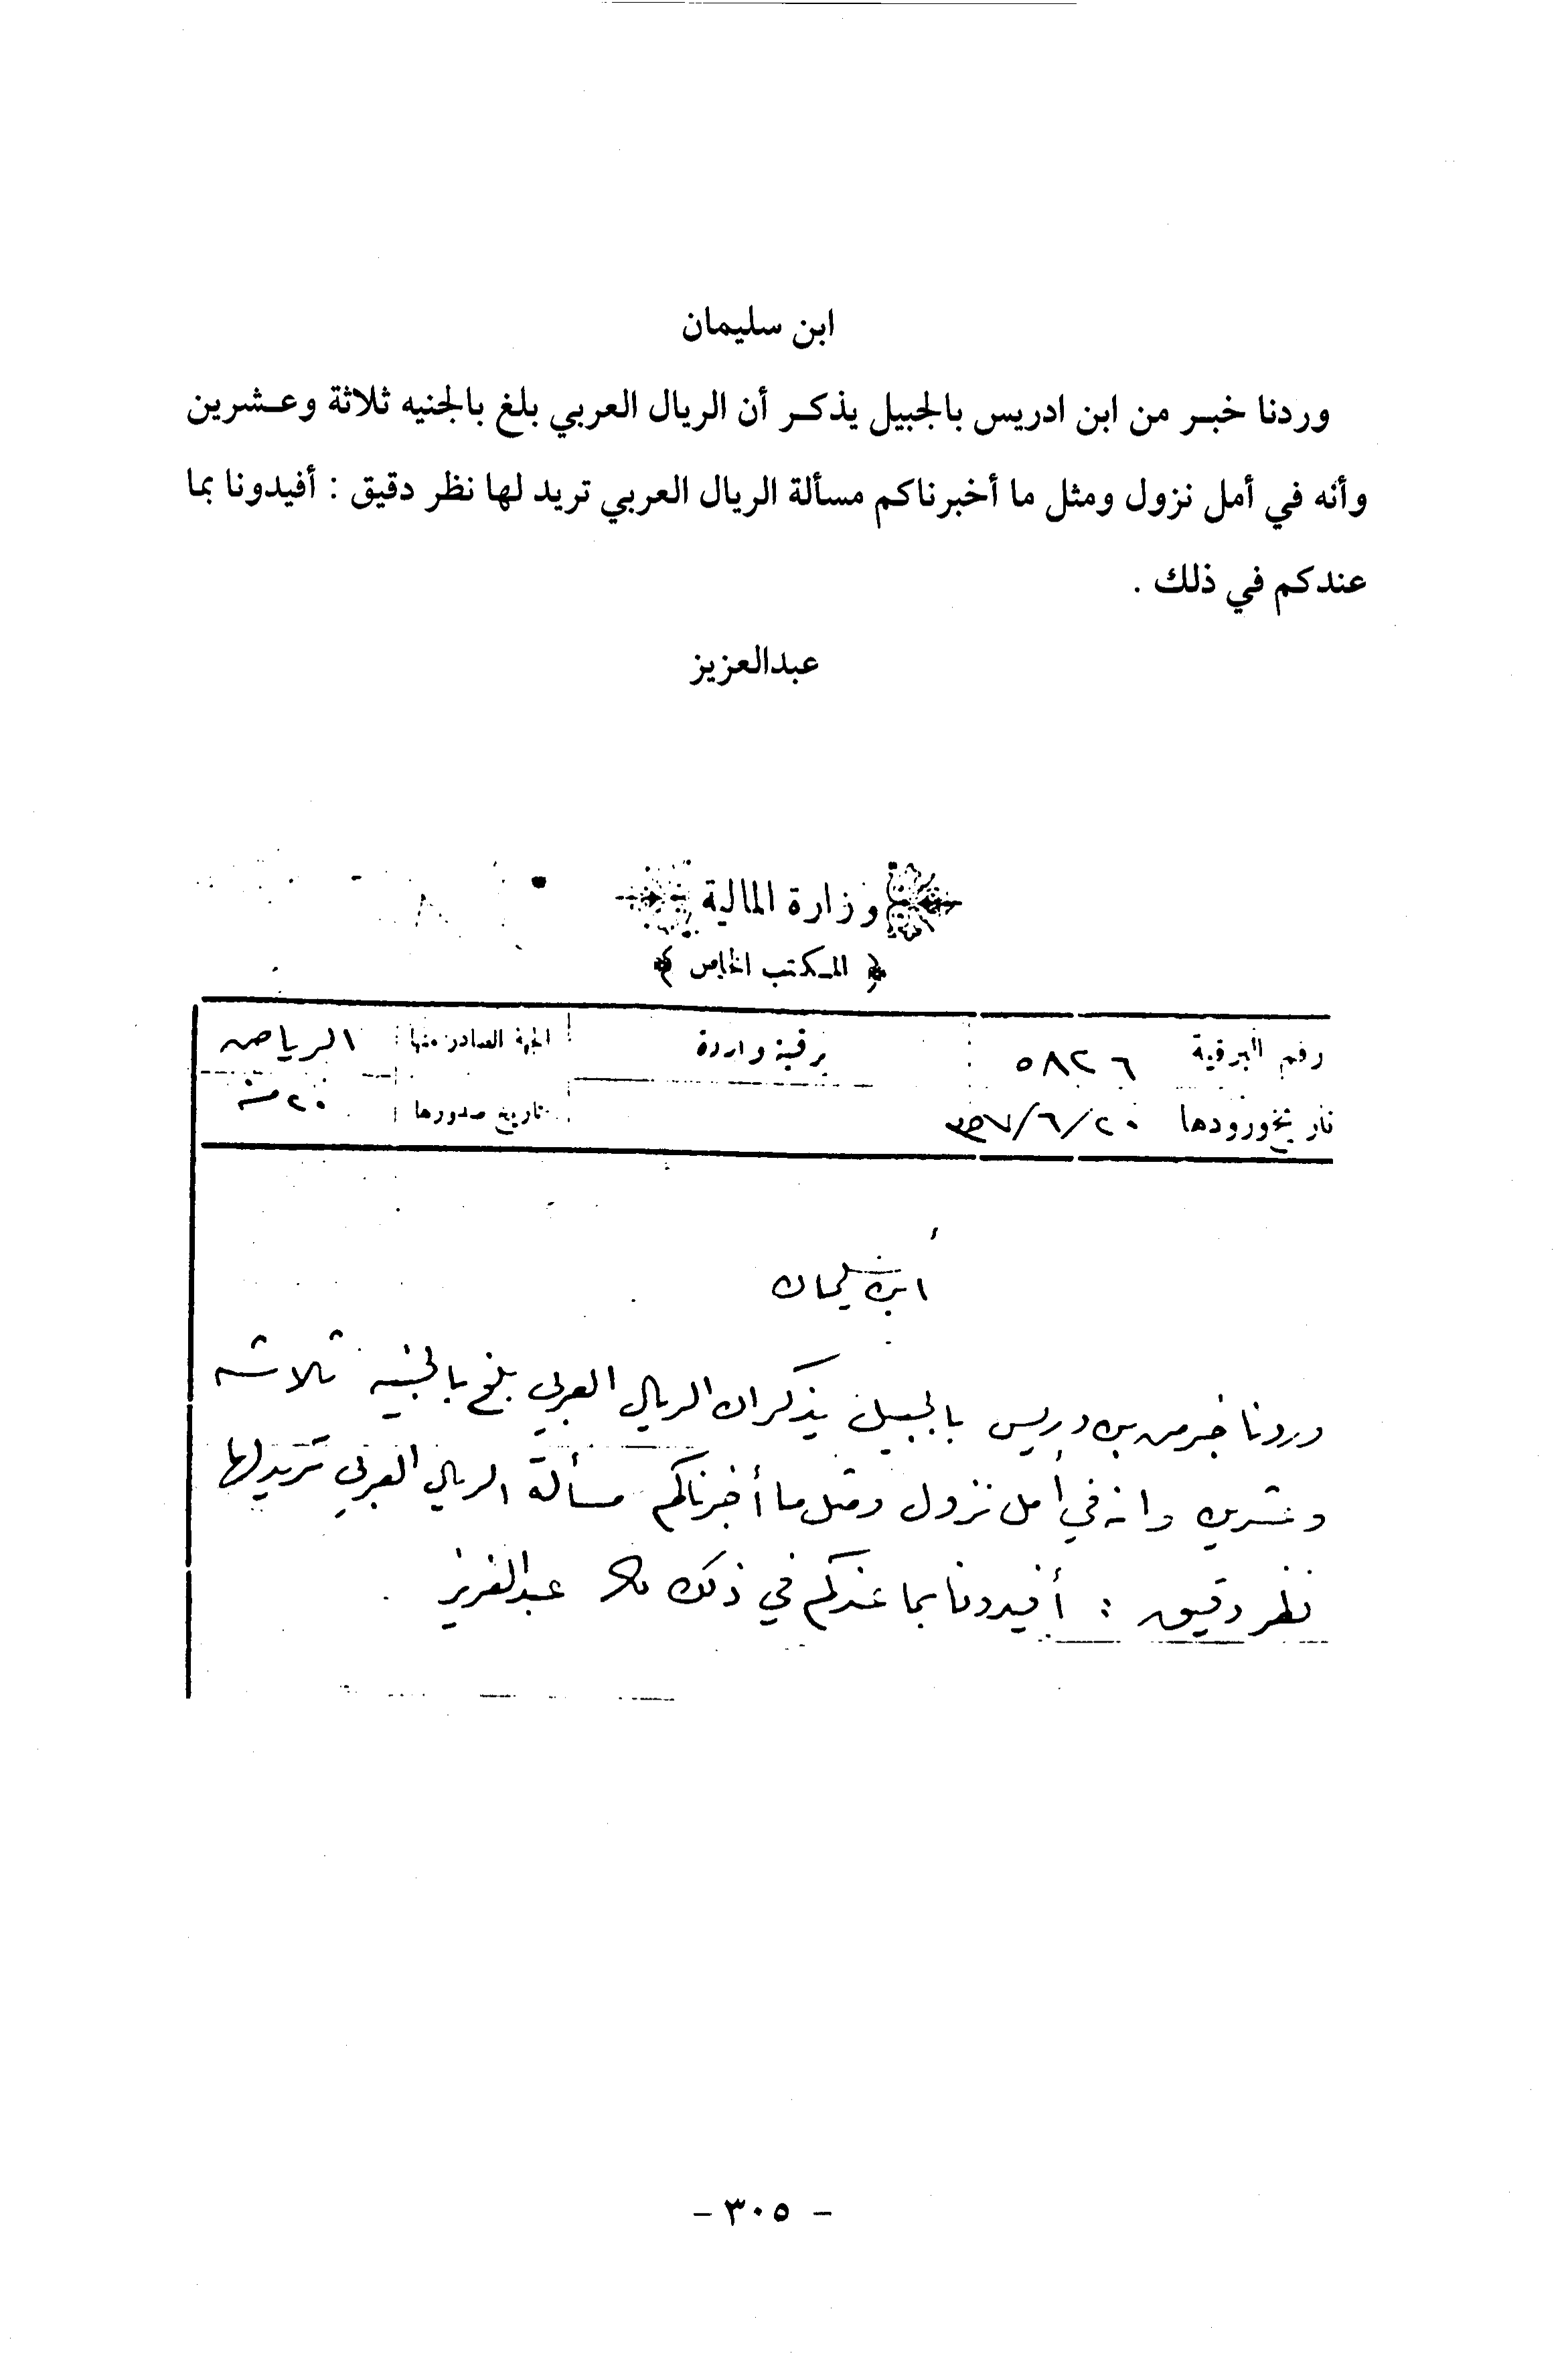 ابن سليمان
وردنا خبر من ابن ادريس بالجبيل يذكر أن الريال العربي بلغ بالجنيه ثلاثة وعشرين
وأنه في أمل نزول ومثل ما أخبرناكم مسألة الريال العربي تريد لها نظر دقيق : أفيدونا بما
عندكم في ذلك .
عبدالعزيز
وزارة المالية
﴿ المكتب الخاص ﴾
رقم البرقية ٥٨٢٦ برقية واردة الجهة الصادر منها الرياض
تاريخ ورودها ٢٠/٦/ تاريخ صدورها ٢٠ منه
ابن سليمان
وردنا خبر من بن دريس بالجبيل يذكر ان الريال العربي بلغ بالجنيه ثلاثه
وعشرين وانه في أمل نزول ومثل ما أخبرناكم مسألة الريال العربي تريد لها
نظر دقيق : أفيدونا بما عندكم في ذلك عبدالعزيز
- ٣٠٥ -